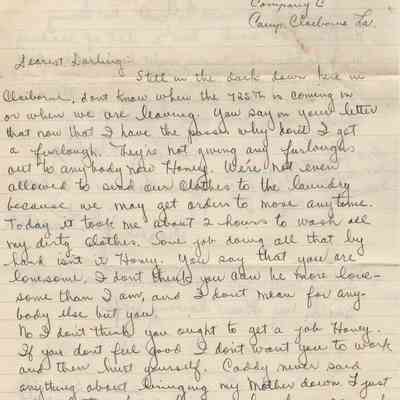 Company C
Camp Claiborne La.
Dearest Darling:
Still in the dark down here in
Claiborne, dont know when the 725th is coming in
or when we are leaving. You say in your letter
that now that I have the passes why don't I get
a furlough. They're not giving any furloughs
out to anybody now Honey. We're not even
allowed to send our clothes to the laundry
because we may get orders to move anytime.
Today it took me about 2 hours to wash all
my dirty clothes. Some job doing all that by
hand isn't it Honey. You say that you are
lonesome, I don't think you can be more lone-
some than I am, and I don't mean for any-
body else but you.
No I don't think you ought to get a job Honey.
If you dont feel good I don't want you to work
and then hurt yourself. Caddy never said
anything about bringing my Mother down I just